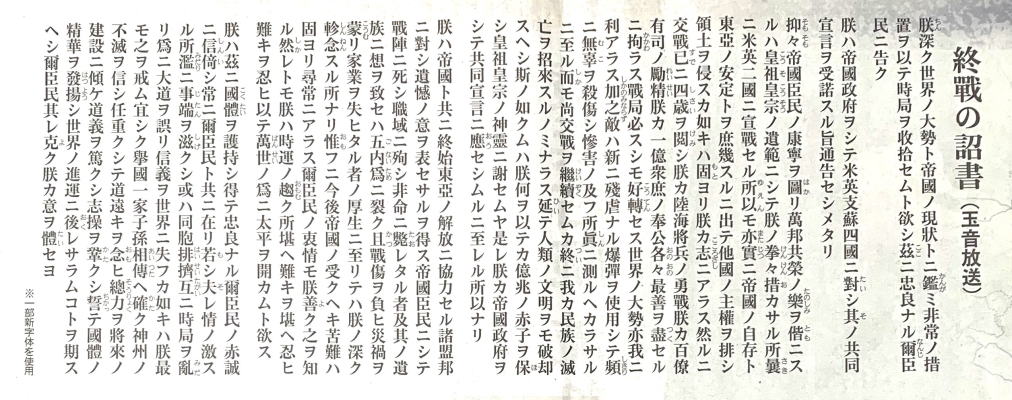 終戰の詔書（玉音放送）
朕深ク世界ノ大勢ト帝國ノ現狀トニ鑑ミ非常ノ措
置ヲ以テ時局ヲ收拾セムト欲シ茲ニ忠良ナル爾臣
民ニ告ク
朕ハ帝國政府ヲシテ米英支蘇四國ニ對シ其ノ共同
宣言ヲ受諾スル旨通告セシメタリ
抑々帝國臣民ノ康寧ヲ圖リ萬邦共榮ノ樂ヲ偕ニス
ルハ皇祖皇宗ノ遺範ニシテ朕ノ拳々措カサル所曩
ニ米英二國ニ宣戰セル所以モ亦實ニ帝國ノ自存ト
東亞ノ安定トヲ庶幾スルニ出テ他國ノ主權ヲ排シ
領土ヲ侵スカ如キハ固ヨリ朕カ志ニアラス然ルニ
交戰已ニ四歲ヲ閱シ朕カ陸海將兵ノ勇戰朕カ百僚
有司ノ勵精朕カ一億衆庶ノ奉公各々最善ヲ盡セル
ニ拘ラス戰局必スシモ好轉セス世界ノ大勢亦我ニ
利アラス加之敵ハ新ニ殘虐ナル爆彈ヲ使用シテ頻
ニ無辜ヲ殺傷シ慘害ノ及フ所眞ニ測ルヘカラサル
ニ至ル而モ尚交戰ヲ繼續セムカ終ニ我カ民族ノ滅
亡ヲ招來スルノミナラス延テ人類ノ文明ヲモ破却
スヘシ斯ノ如クムハ朕何ヲ以テカ億兆ノ赤子ヲ保
シ皇祖皇宗ノ神靈ニ謝セムヤ是レ朕カ帝國政府ヲ
シテ共同宣言ニ應セシムルニ至レル所以ナリ
朕ハ帝國ト共ニ終始東亞ノ解放ニ協力セル諸盟邦
ニ對シ遺憾ノ意ヲ表セサルヲ得ス帝國臣民ニシテ
戰陣ニ死シ職域ニ殉シ非命ニ斃レタル者及其ノ遺
族ニ想ヲ致セハ五內爲ニ裂ク且戰傷ヲ負ヒ災禍ヲ
蒙リ家業ヲ失ヒタル者ノ厚生ニ至リテハ朕ノ深ク
軫念スル所ナリ惟フニ今後帝國ノ受クヘキ苦難ハ
固ヨリ尋常ニアラス爾臣民ノ衷情モ朕善ク之ヲ知
ル然レトモ朕ハ時運ノ趨ク所堪ヘ難キヲ堪ヘ忍ヒ
難キヲ忍ヒ以テ萬世ノ爲ニ太平ヲ開カムト欲ス
朕ハ茲ニ國體ヲ護持シ得テ忠良ナル爾臣民ノ赤誠
ニ信倚シ常ニ爾臣民ト共ニ在リ若シ夫レ情ノ激ス
ル所濫ニ事端ヲ滋クシ或ハ同胞排擠互ニ時局ヲ亂
リ爲ニ大道ヲ誤リ信義ヲ世界ニ失フカ如キハ朕最
モ之ヲ戒ム宜シク擧國一家子孫相傳ヘ確ク神州ノ
不滅ヲ信シ任重クシテ道遠キヲ念ヒ總力ヲ將來ノ
建設ニ傾ケ道義ヲ篤クシ志操ヲ鞏クシ誓テ國體ノ
精華ヲ發揚シ世界ノ進運ニ後レサラムコトヲ期ス
ヘシ爾臣民其レ克ク朕カ意ヲ體セヨ
※一部新字体を使用